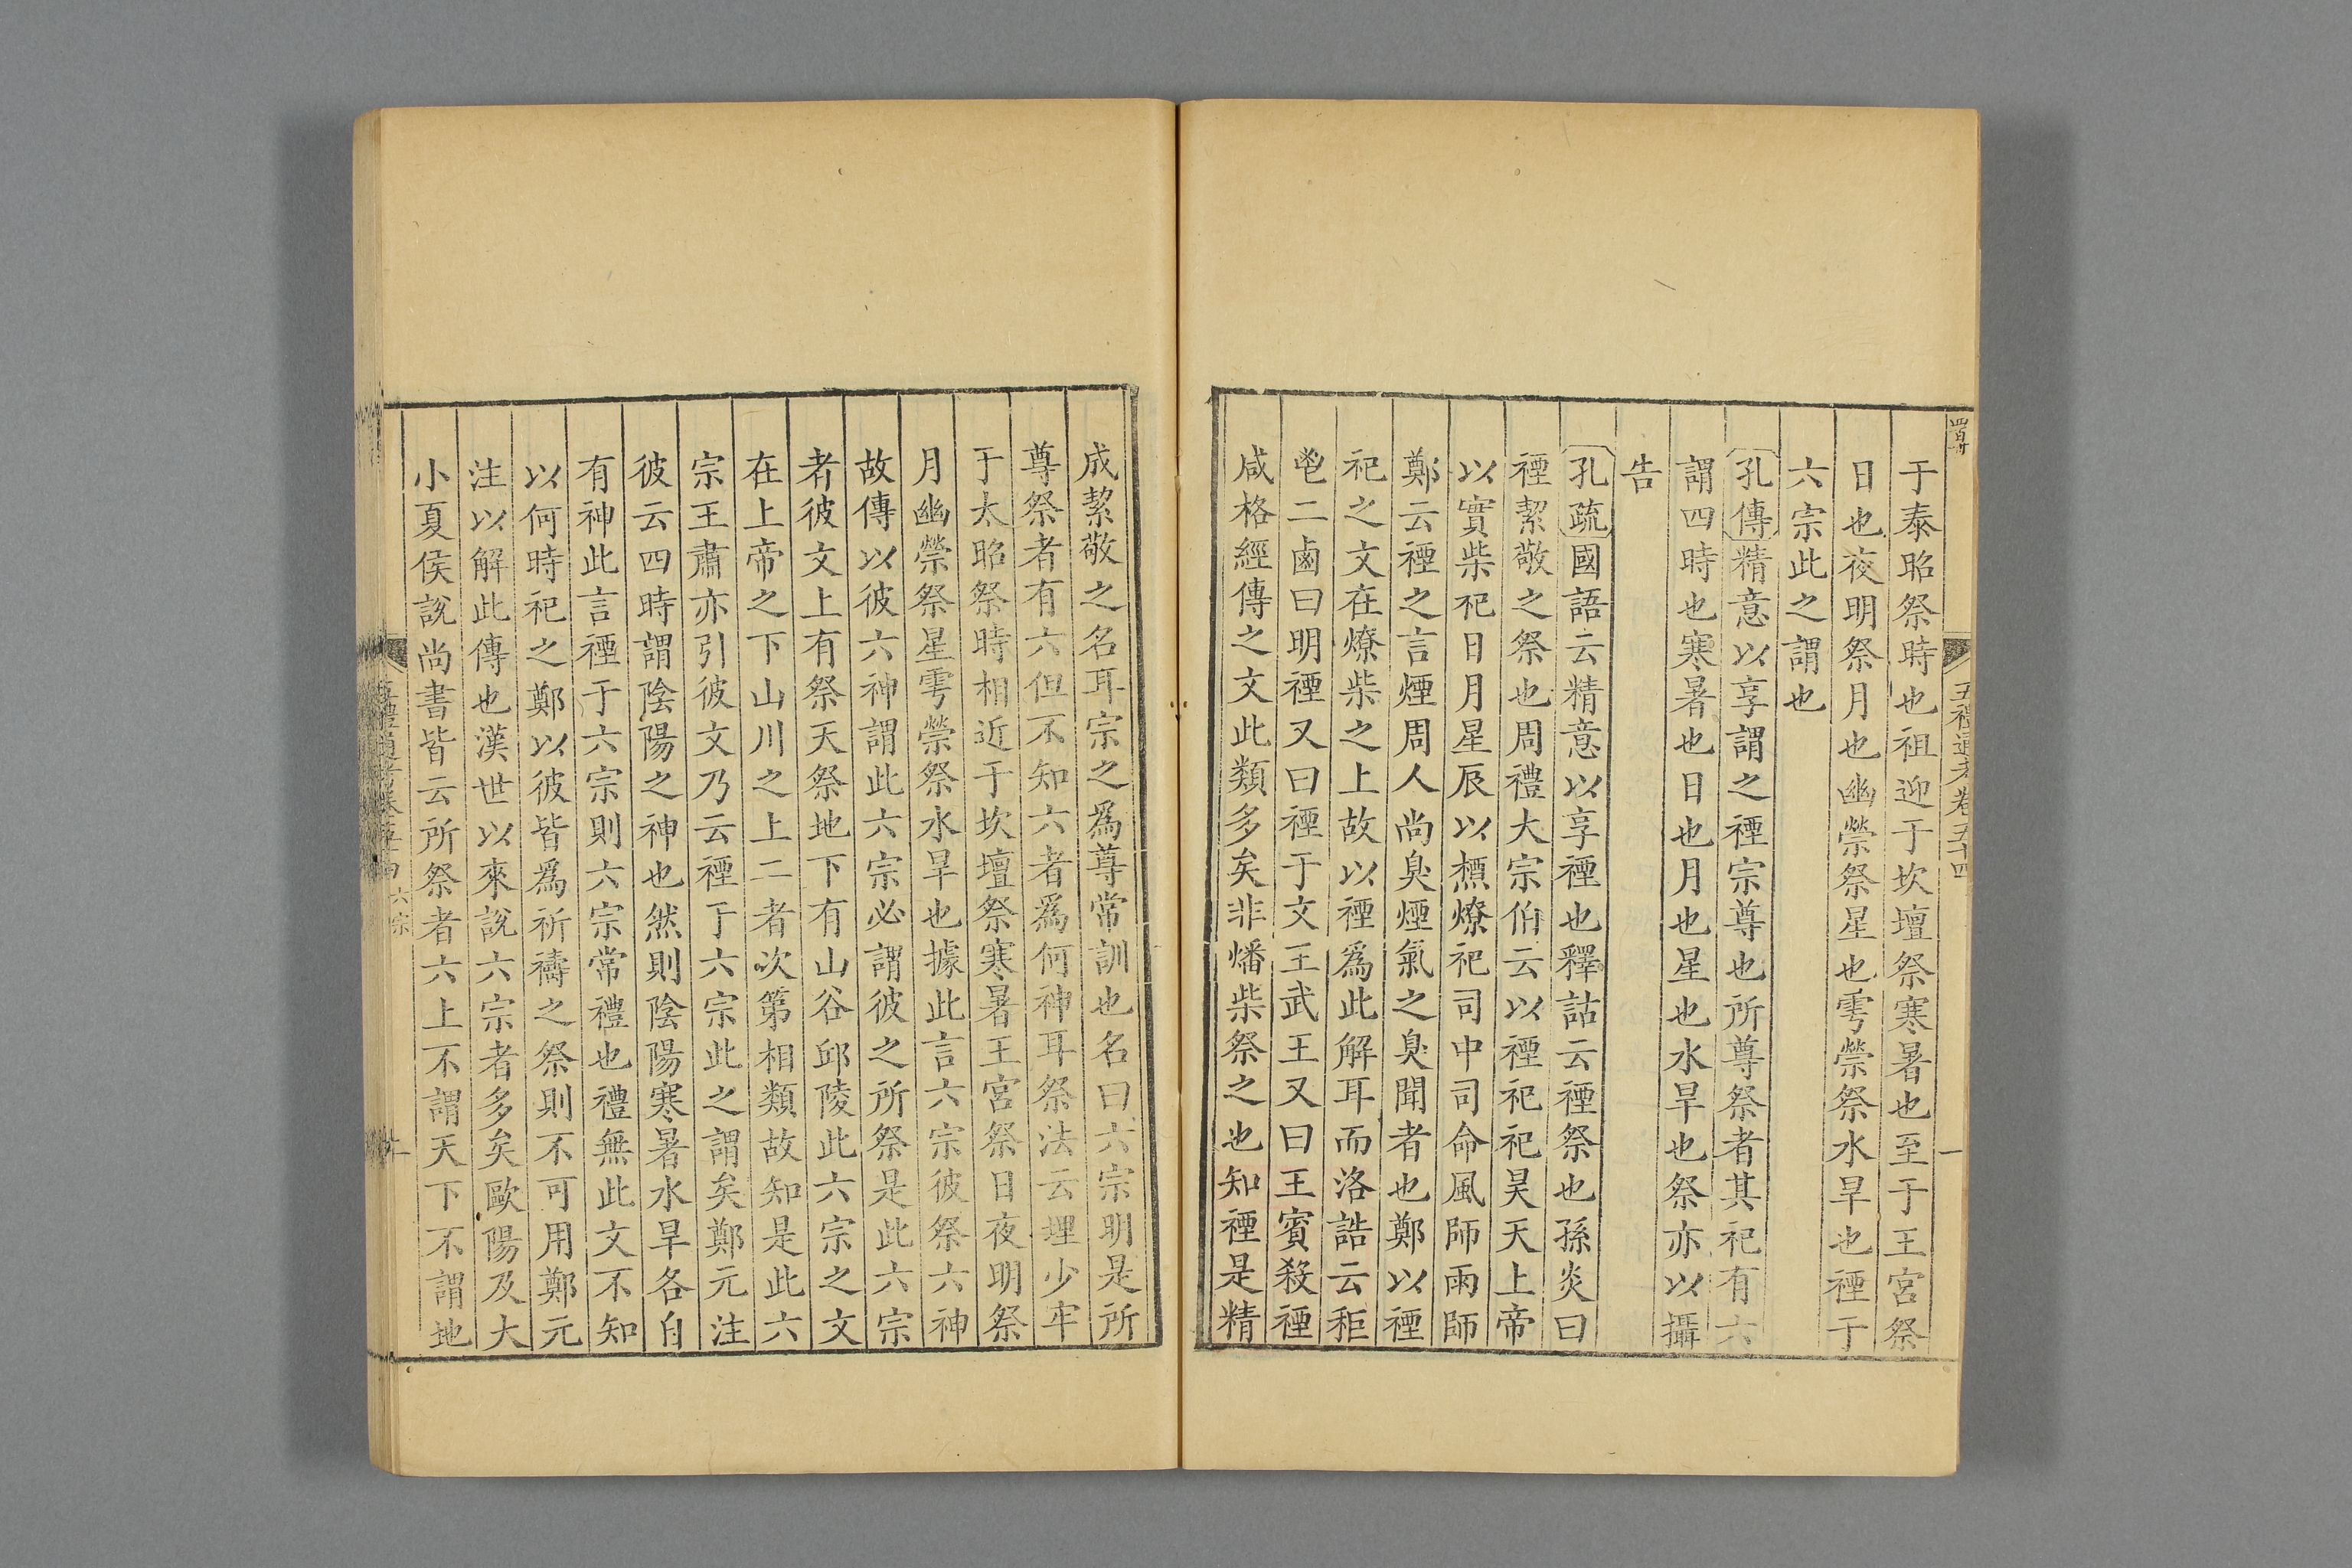 五禮通考卷五十四
于泰昭祭時也祖迎于坎壇祭寒暑也至于王宮祭
日也夜明祭月也幽禜祭星也雩禜祭水旱也禋于
六宗此之謂也
孔傳精意以享謂之禋宗尊也所尊祭者其祀有六
謂四時也寒暑也日也月也星也水旱也祭亦以攝
告
孔疏國語云精意以享禋也釋詁云禋祭也孫炎曰
禋絜敬之祭也周禮大宗伯云以禋祀祀昊天上帝
以實柴祀日月星辰以槱燎祀司中司命風師雨師
鄭云禋之言煙周人尚臭煙氣之臭聞者也鄭以禋
祀之文在燎柴之上故以禋爲此解耳而洛誥云秬
鬯二卣曰明禋又曰禋于文王武王又曰王賓殺禋
咸格經傳之文此類多矣非燔柴祭之也知禋是精
成絜敬之名耳宗之爲尊常訓也名曰六宗明是所
尊祭者有六但不知六者爲何神耳祭法云埋少牢
于太昭祭時相近于坎壇祭寒暑王宮祭日夜明祭
月幽禜祭星雩禜祭水旱也據此言六宗彼祭六神
故傳以彼六神謂此六宗必謂彼之所祭是此六宗
者彼文上有祭天祭地下有山谷邱陵此六宗之文
在上帝之下山川之上二者次第相類故知是此六
宗王肅亦引彼文乃云禋于六宗此之謂矣鄭元注
彼云四時謂陰陽之神也然則陰陽寒暑水旱各自
有神此言禋于六宗則六宗常禮也禮無此文不知
以何時祀之鄭以彼皆爲祈禱之祭則不可用鄭元
注以解此傳也漢世以來說六宗者多矣歐陽及大
小夏侯說尚書皆云所祭者六上不謂天下不謂地
六宗